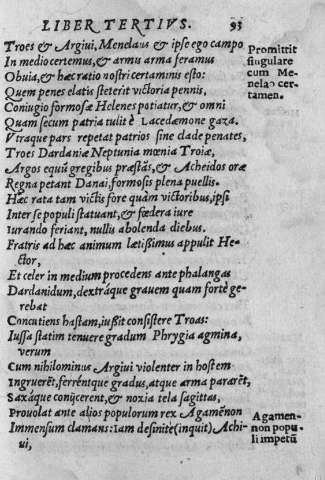 LIBER TERTIVS. 93
Troes & Argiui, Menelaus & ipse ego campo
In medio certemus, & armu arma feramus
Obuia, & hæc ratio nostri certaminis esto:
Quem penes elatis steterit victoria pennis,
Coniugio formosæ Helenes potiatur, & omni
Quam secum patria tulit è Lacedæmone gaza.
Vtraque pars repetat patrios sine clade penates,
Troes Dardaniæ Neptunia mœnia Troiæ,
Argos equũ gregibus præstãs, & Acheidos oræ
Regna petant Danai, formosis plena puellis.
Hæc rata tam victis fore quàm victoribus, ipsi
Inter se populi statuant, & fœdera iure
Iurando feriant, nullu abolenda diebus.
Fratris ad hæc animum lætißimus appulit He-
ctor,
Et celer in medium procedens ante phalangas
Dardanidum, dextráque grauem quam fortè ge-
rebat
Concutiens hastam, iußit consistere Troas:
Iussa statim tenuere gradum Phrygia agmina,
verum
Cum nihilominus Argiui violenter in hostem
Ingruerẽt, ferréntque gradus, atque arma pararẽt,
Saxáque conijcerent, & noxia tela sagittas,
Prouolat ante alios populorum rex Agamẽnon
Immensum clamans: Iam desinite (inquit) Achi-
ui,
Promittit
singulare
cum Me-
nelao cer-
tamen.
Agamen-
non popu
li impetũ